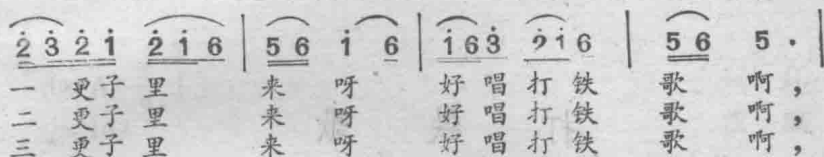 2̇ 3̇ 2̇ 1̇ 2̇ 1̇ 6 | 5 6 1̇ 6 | 1̇ 6 3̇ 2̇ 1̇ 6 | 5 6 5 · |
一 更子 里 来 呀 好 唱 打 铁 歌 啊，
二 更子 里 来 呀 好 唱 打 铁 歌 啊，
三 更子 里 来 呀 好 唱 打 铁 歌 啊，